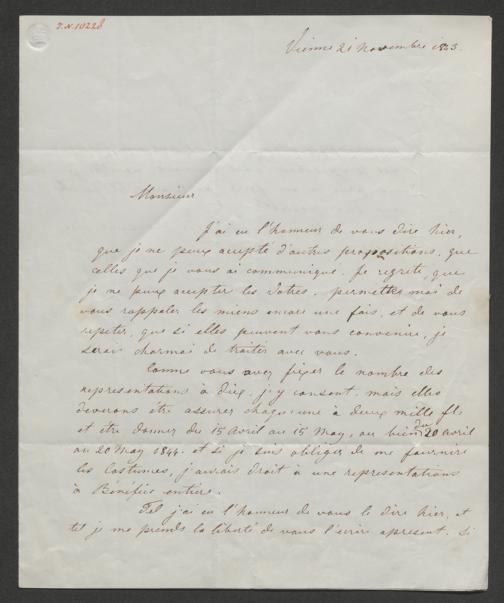 I.N. 10228
Vienne 21 Novembre 1843.
Monsieur
J'ai eu l'honneur de vous dire hier,
que je ne peux accepté d'autres propositions, que
celles que je vous ai communiqué. Je regrete, que
je ne peux accepter les votres. permettez moi de
vous rappeler les miens encore une fois, et de vous
repeter, que si elles peuvent vous convenir, je
serai charmai de traiter avec vous.
Comme vous avez fixer le nombre des
representations à dix, j'y consent. mais elles
devrons etre assurer chaqu'une à deux mille fl.
et etre donner du 15 Avril au 15 May, ou bien du 20 Avril
au 20 May 1844. et si je suis obliger de me fournire
les Costumes, j'aurais droit à une representations
à Bénéfice entiere.
Tel j'ai eu l'honneur de vous le dire hier, et
tel je me prends la liberté de vous l'ecrire apresent. Si